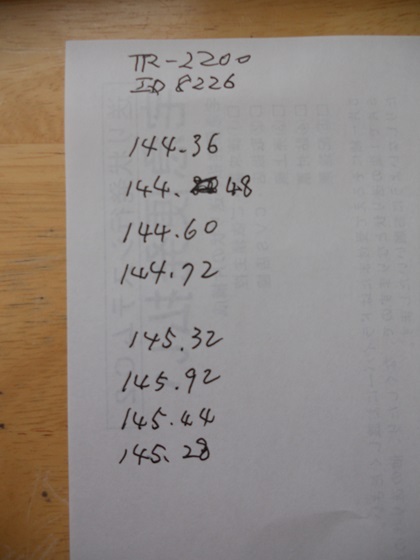 TR-2200
ID 8226
144.36
144. 48
144.60
144.72
145.32
145.92
145.44
145.28